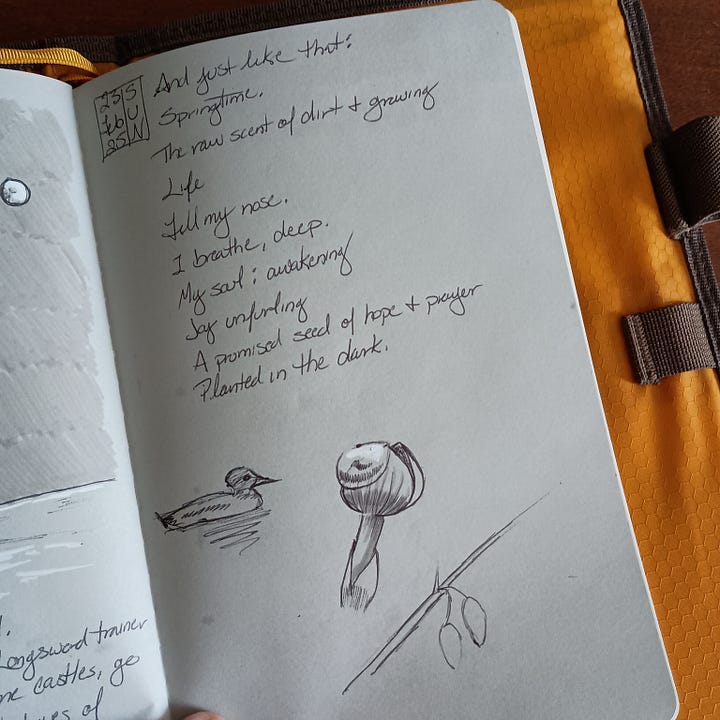 Longsword trainer
castles, go
of
23 S
Feb U
25 N
And just like that:
Springtime.
The raw scent of dirt + growing
Life
Fill my nose.
I breathe, deep.
My soul: awakening
Joy unfurling
A promised seed of hope + prayer
Planted in the dark.